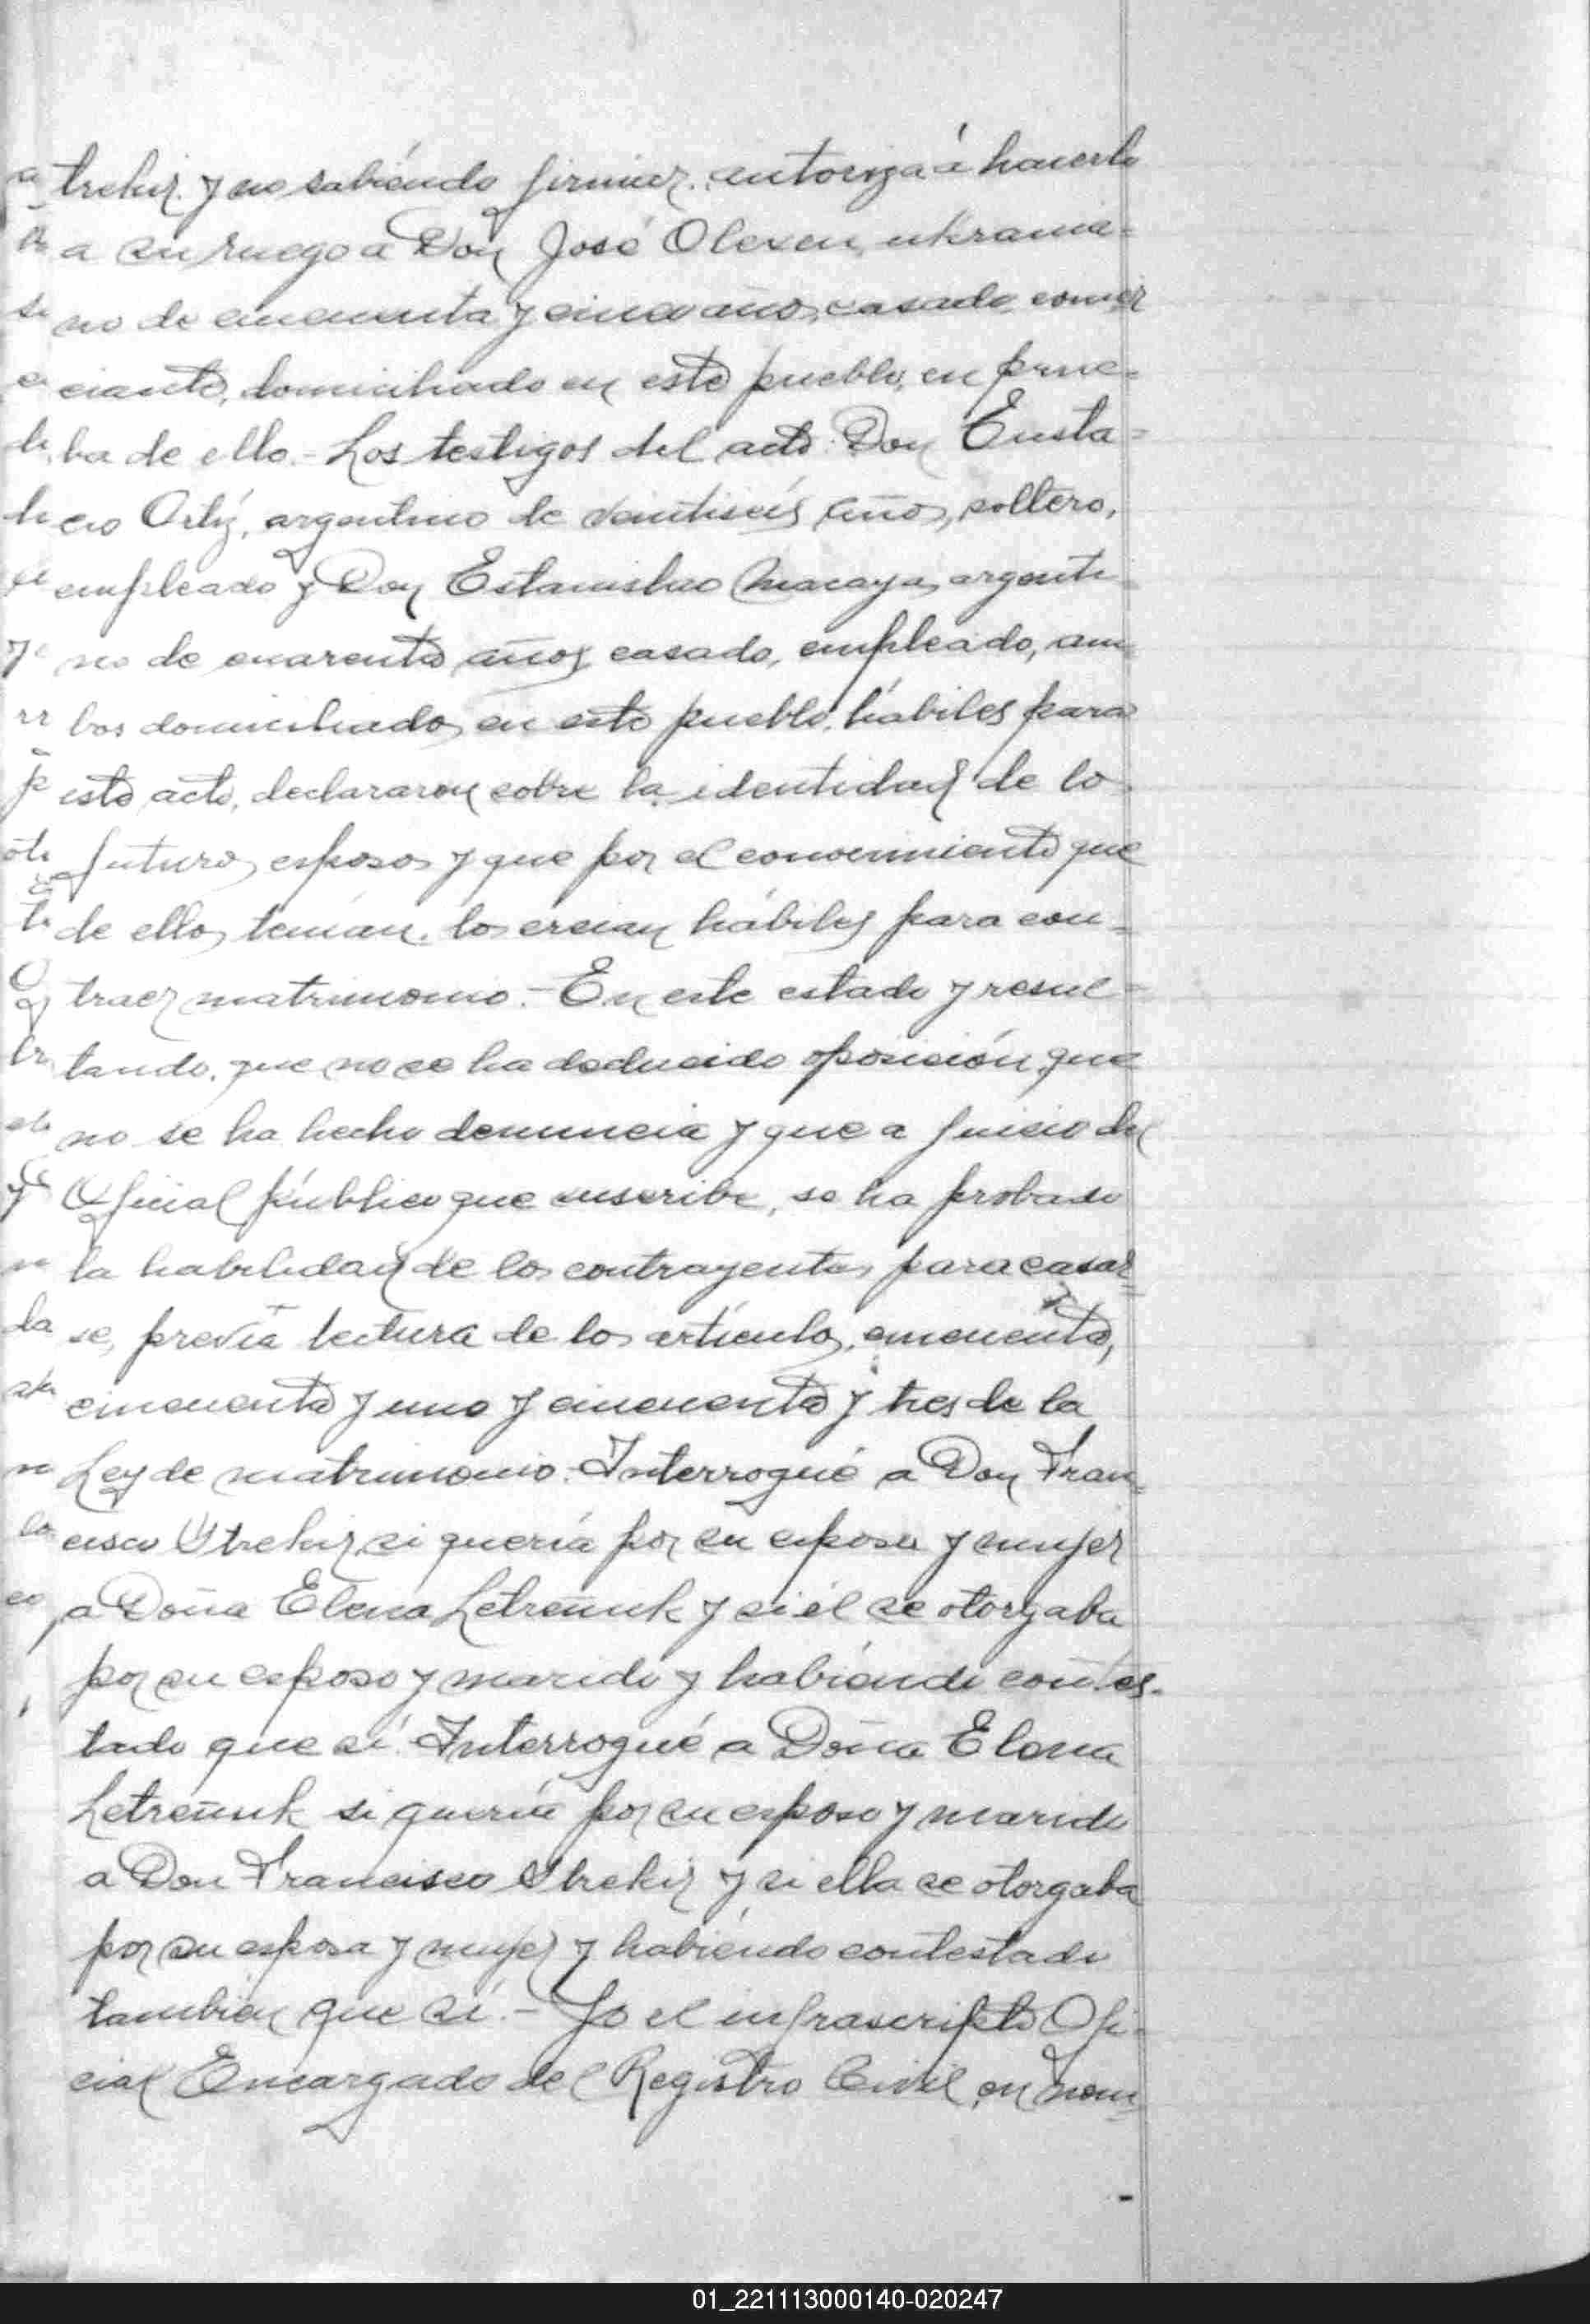 trekiz. y no sabiéndo firmar. autoriza á hacerlo
a su ruego a Don José Olexen, ukrania=
no de cincuenta y cinco años, casado, comer
ciante, domiciliado en este pueblo, en prue=
ba de ello.- Los testigos del acto: Don Eusta=
cio Ortíz, argentino de veintiseis años, soltero,
empleado y Don Estanislao Macaya, argenti
no de cuarenta años, casado, empleado, am
bos domiciliados en este pueblo, hábiles para
este acto, declararon sobre la identidad de los
futuros esposos y que por el conocimiento que
de ellos teman. los creian hábiles para con=
traer matrimonio.- En este estado y resul=
tando, que no se ha deducido oposición, que
no se ha hecho denuncia y que a juicio del
Oficial público que suscribe, se ha probado
la habilidad de los contrayentes para casar
se, previa lectura de los artículos, cincuenta,
cincuenta y uno y cincuenta y tres de la
Ley de matrimonio. Interrogué a Don Fran=
cisco Strekiz, si quería por su esposa y mujer
a Doña Elena Letreñuk y si él se otorgaba
por su esposo y marido y habiéndo contes-
tado que sí. Interrogué a Doña Elena
Letreñuk si quería por su esposo y marido
a Don Francisco Strekiz y si ella se otorgaba
por su esposa y mujer y habiéndo contestado
también que sí.- Yo el infrascripto Ofi=
cial Encargado del Registro Civil, en nom=
01_221113000140-020247